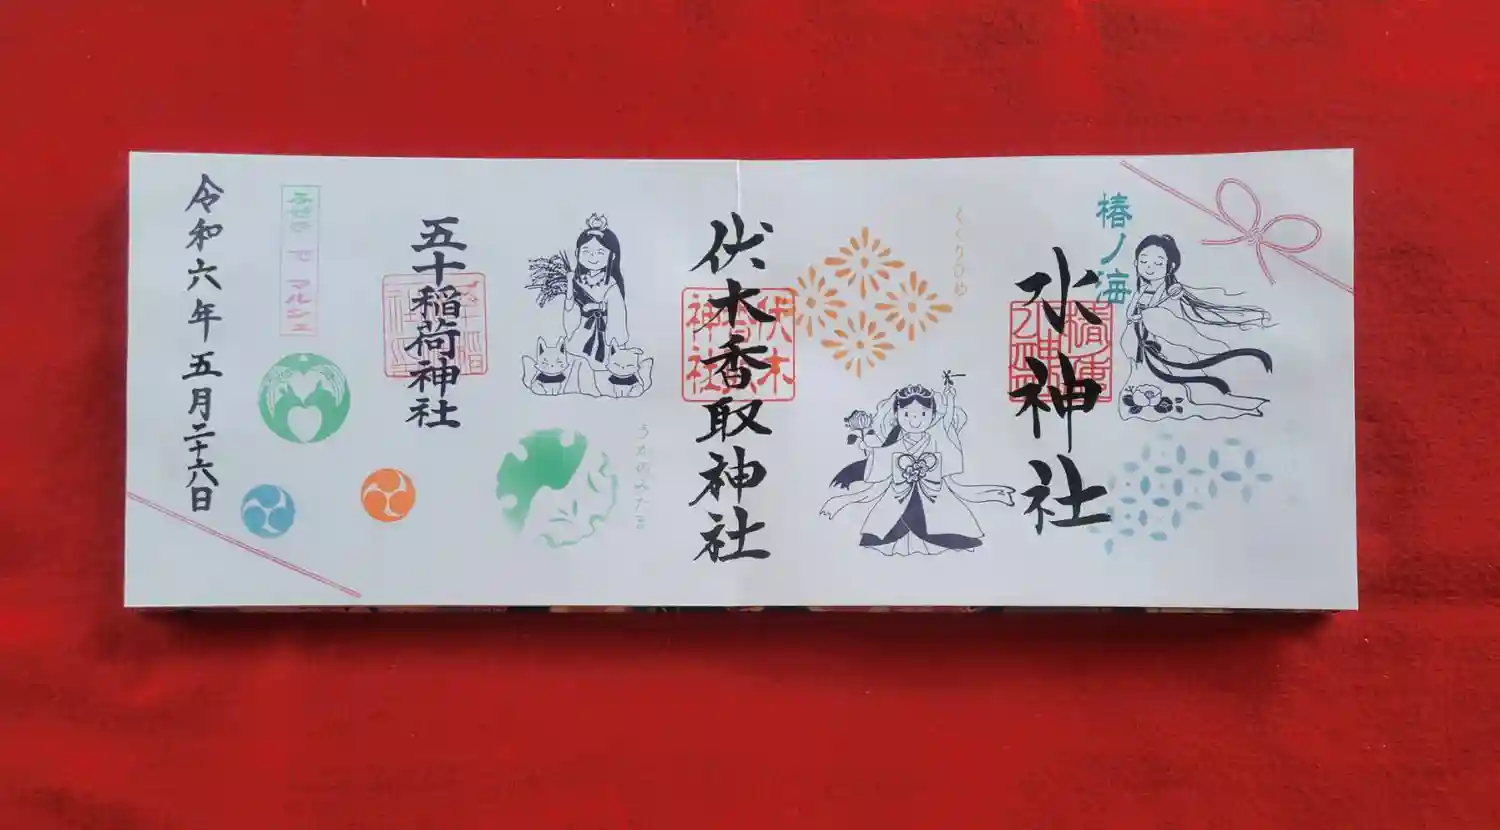 椿ノ海
水神社
くくりひめ
伏木香取神社
伏木
香取
神社
うかのみたま
五十稲荷神社
令和六年五月二十六日